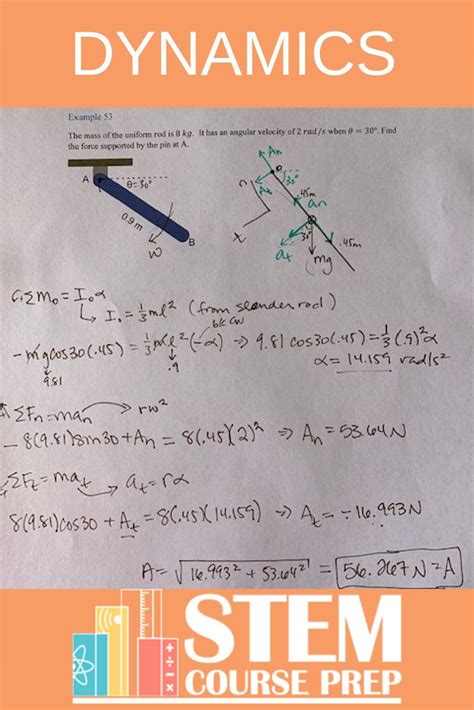 DYNAMICS
Example 53
The mass of the uniform rod is 8 kg. It has an angular velocity of 2 rad/s when θ = 30°. Find
the force supported by the pin at A.
A
θ=30°
0.9m
ω
B
An
30°
n
At
.45m
an
x
at
30°
mg
.45m
ΣMo = Ioα
↳ Io = 1/3 ml² (from slender rod)
b/c CW
-mgcos30(.45) = 1/3 ml²(-α) ⇒ 9.81 cos30(.45) = 1/3(.9)²α
9.81
.9
α = 14.159 rad/s²
ΣFn = man → rω²
-8(9.81)sin30 + An = 8(.45)(2)² ⇒ An = 53.64N
ΣFt = mat → at = rα
8(9.81)cos30 + At = 8(.45)(14.159) ⇒ At = -16.993N
A = √16.993² + 53.64² = 56.267N = A
STEM
COURSE PREP